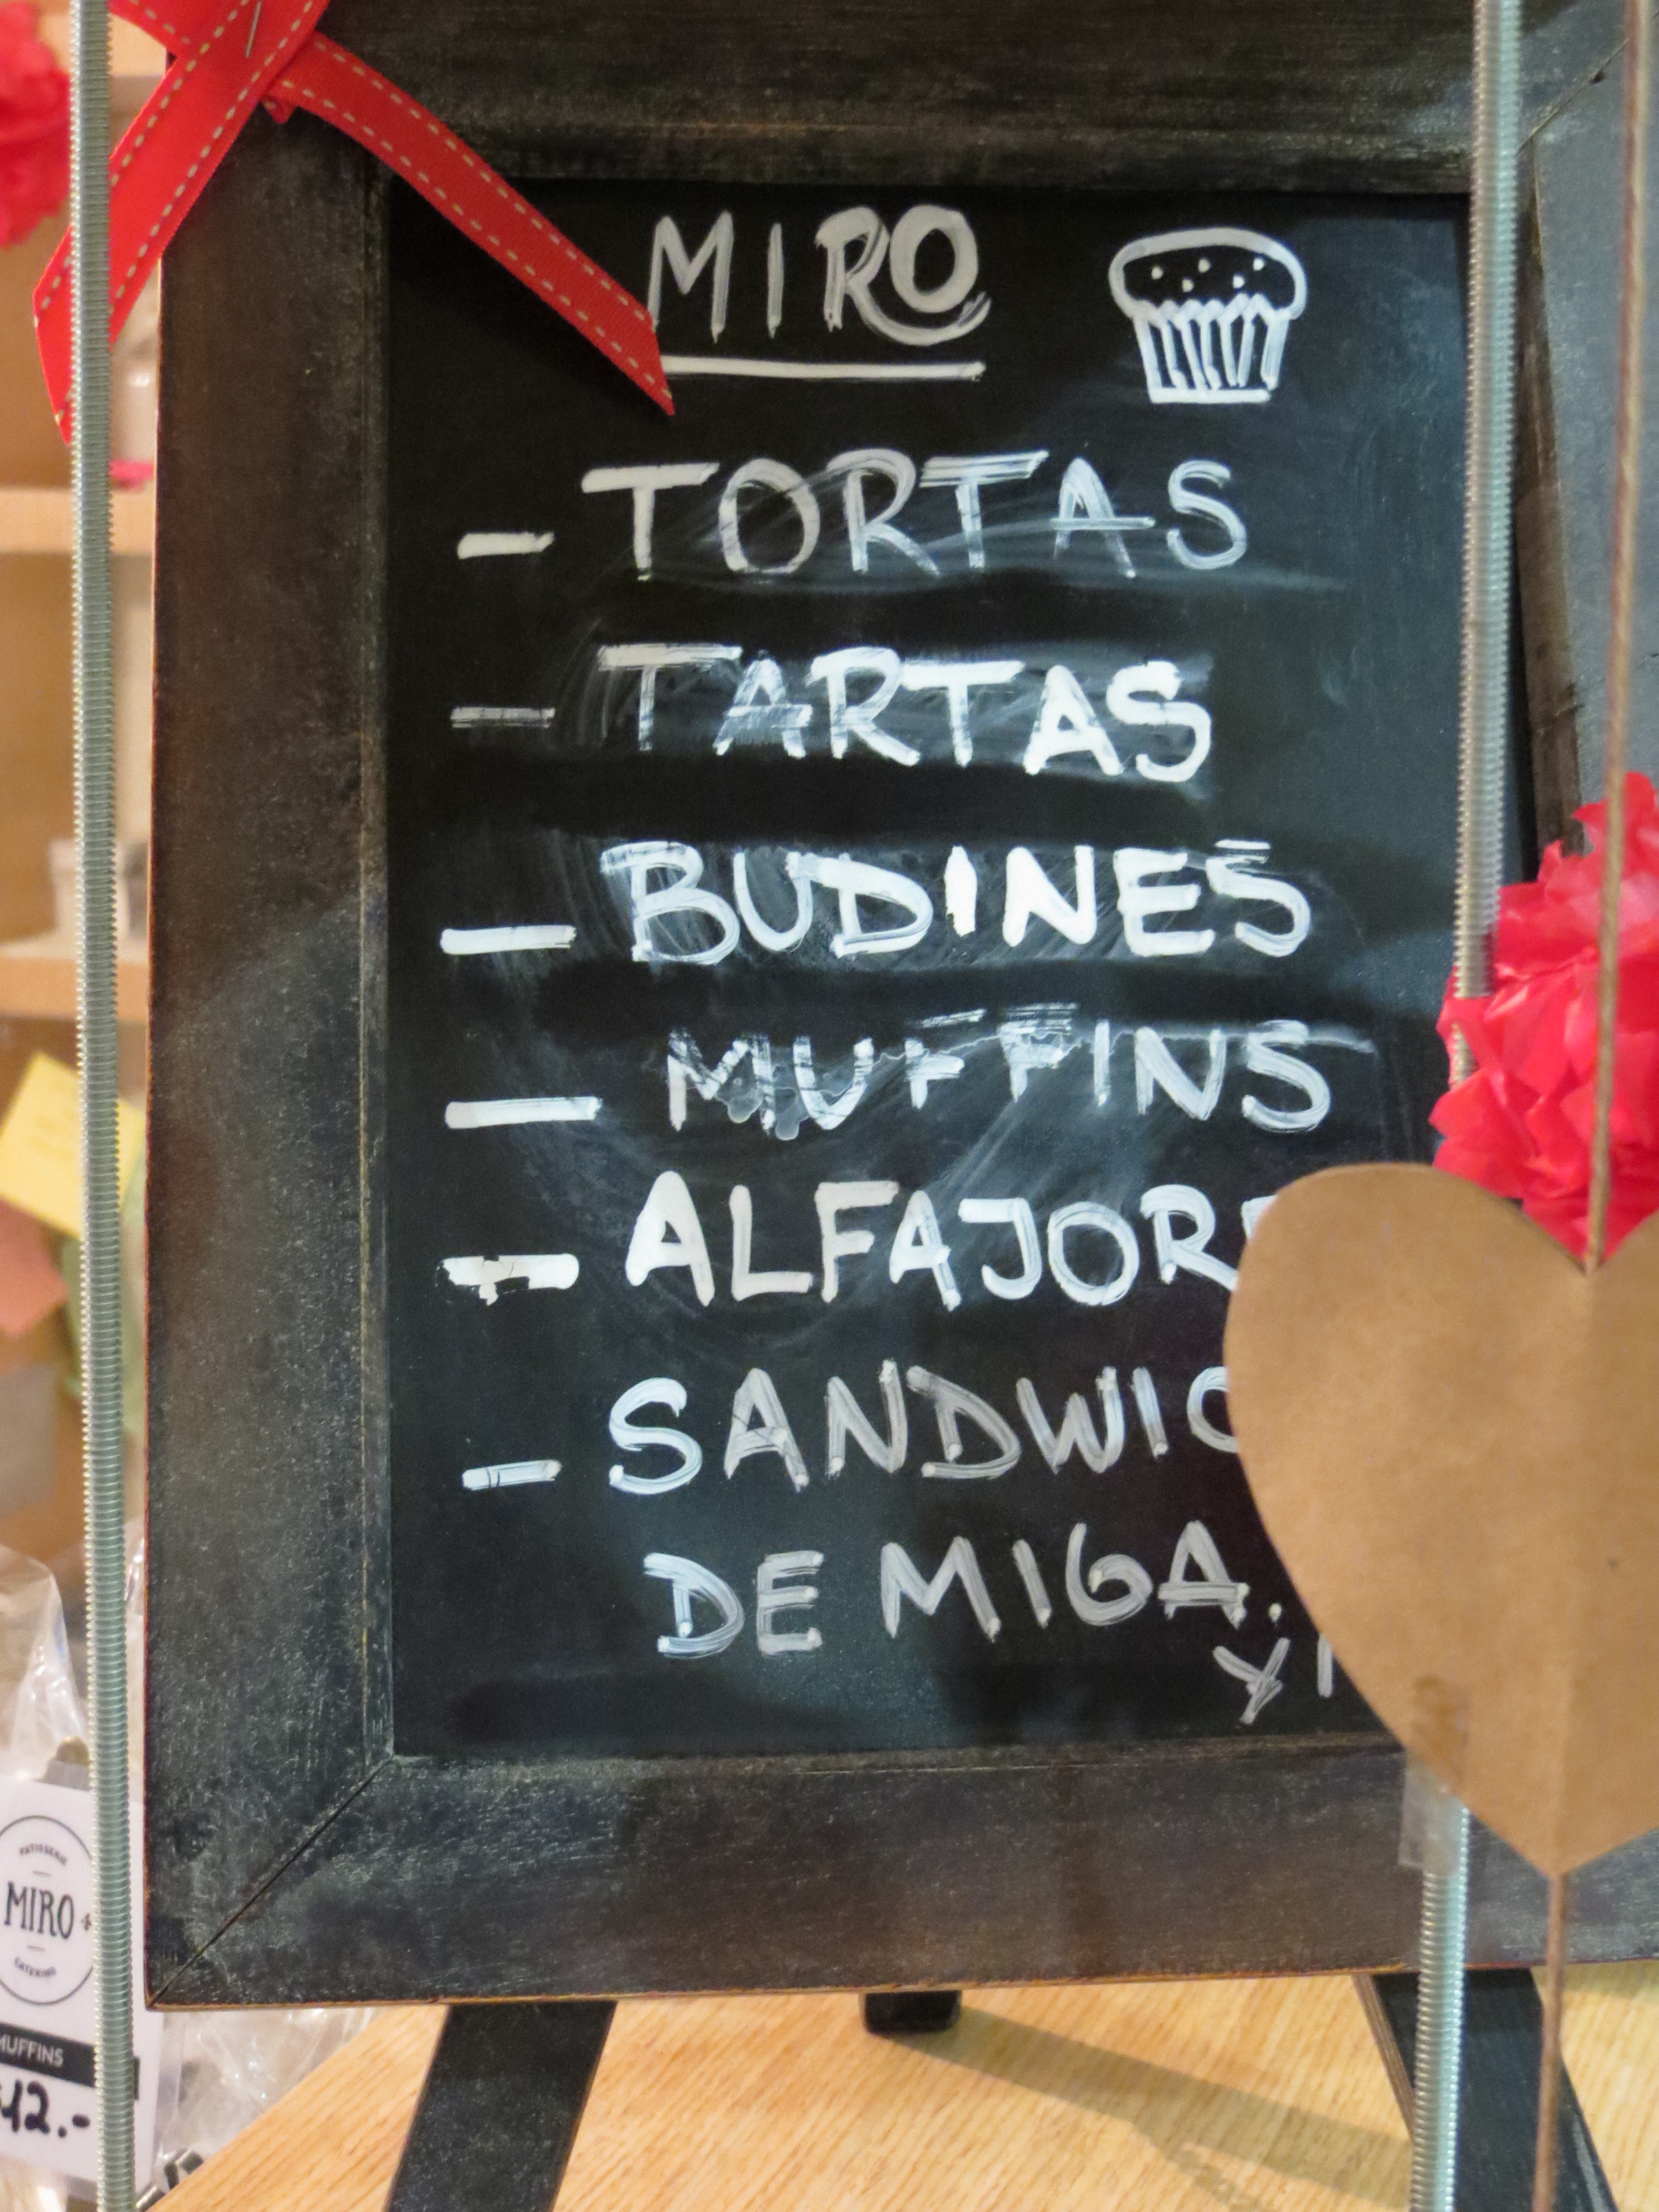 MIRO
- TORTAS
- TARTAS
- BUDINES
- MUFFINS
- ALFAJOR
- SANDWIC
DE MIGA.
Y
PATISSERIE
MIRO +
CATERING
MUFFINS
12.-